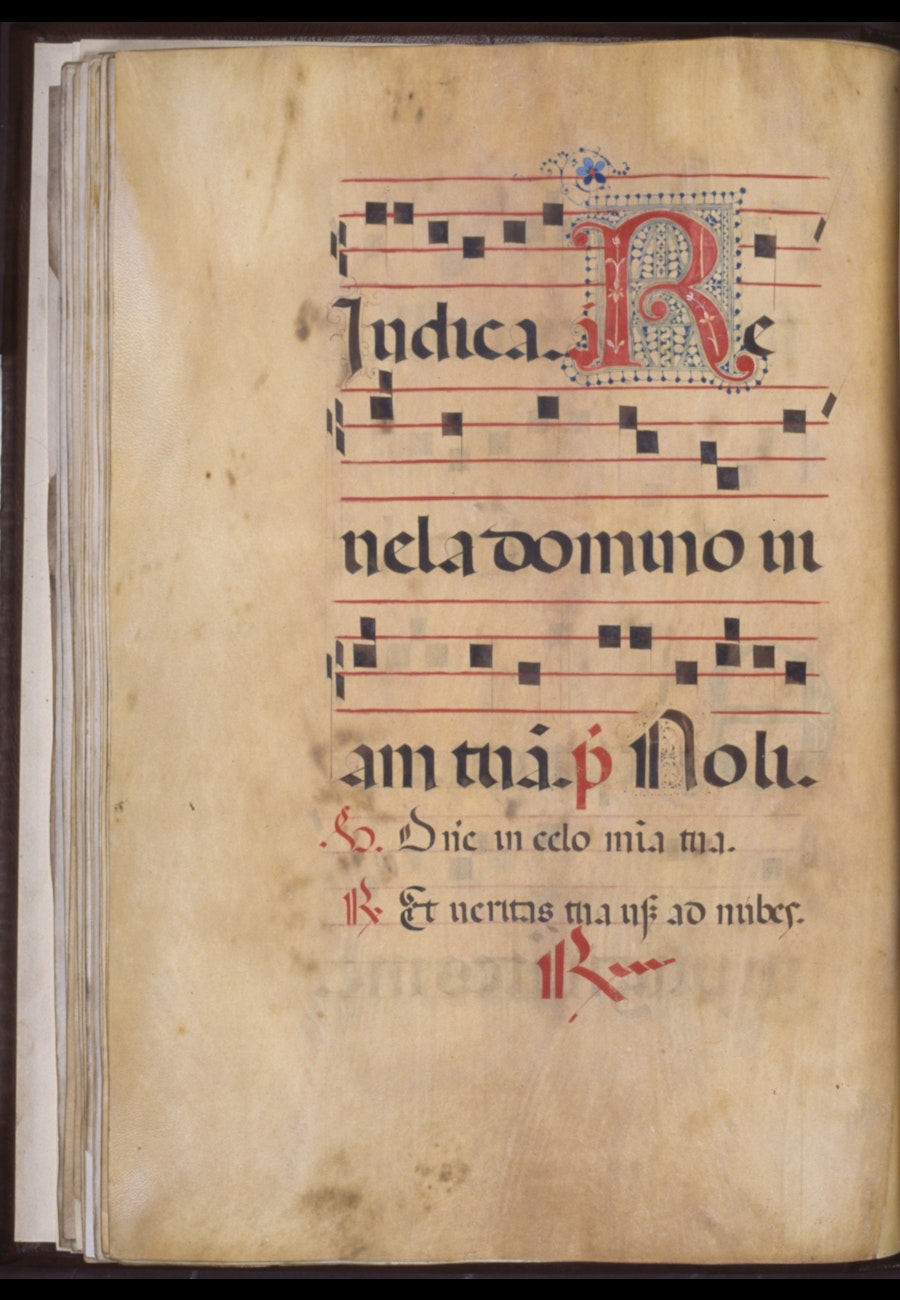 Iudica. ã Re
uela domino ui
am tuã. p̃ Noli.
V. Dñe in celo mĩa tua.
R. Et ueritas tua usq ad nubes.
R